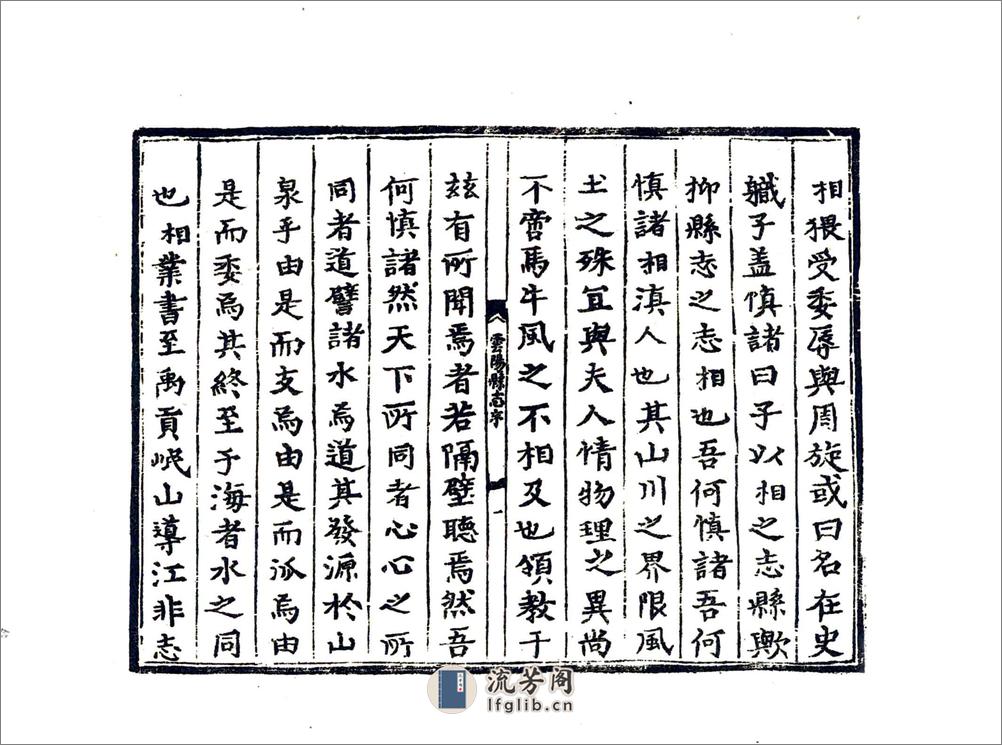 相猥受委辱與周旋或曰名在史
軄子盖慎諸曰子以相之志縣歟
抑縣志之志相也吾何慎諸吾何
慎諸相滇人也其山川之界限風
土之殊宜與夫人情物理之異尚
不啻馬牛風之不相及也領教于
雲陽縣志序
一
兹有所聞焉者若隔壁聽焉然吾
何慎諸然天下所同者心心之所
同者道譬諸水焉道其發源於山
泉乎由是而支焉由是而派焉由
是而委焉其終至于海者水之同
也相業書至禹貢岷山導江非志
流芳阁
lfglib.cn